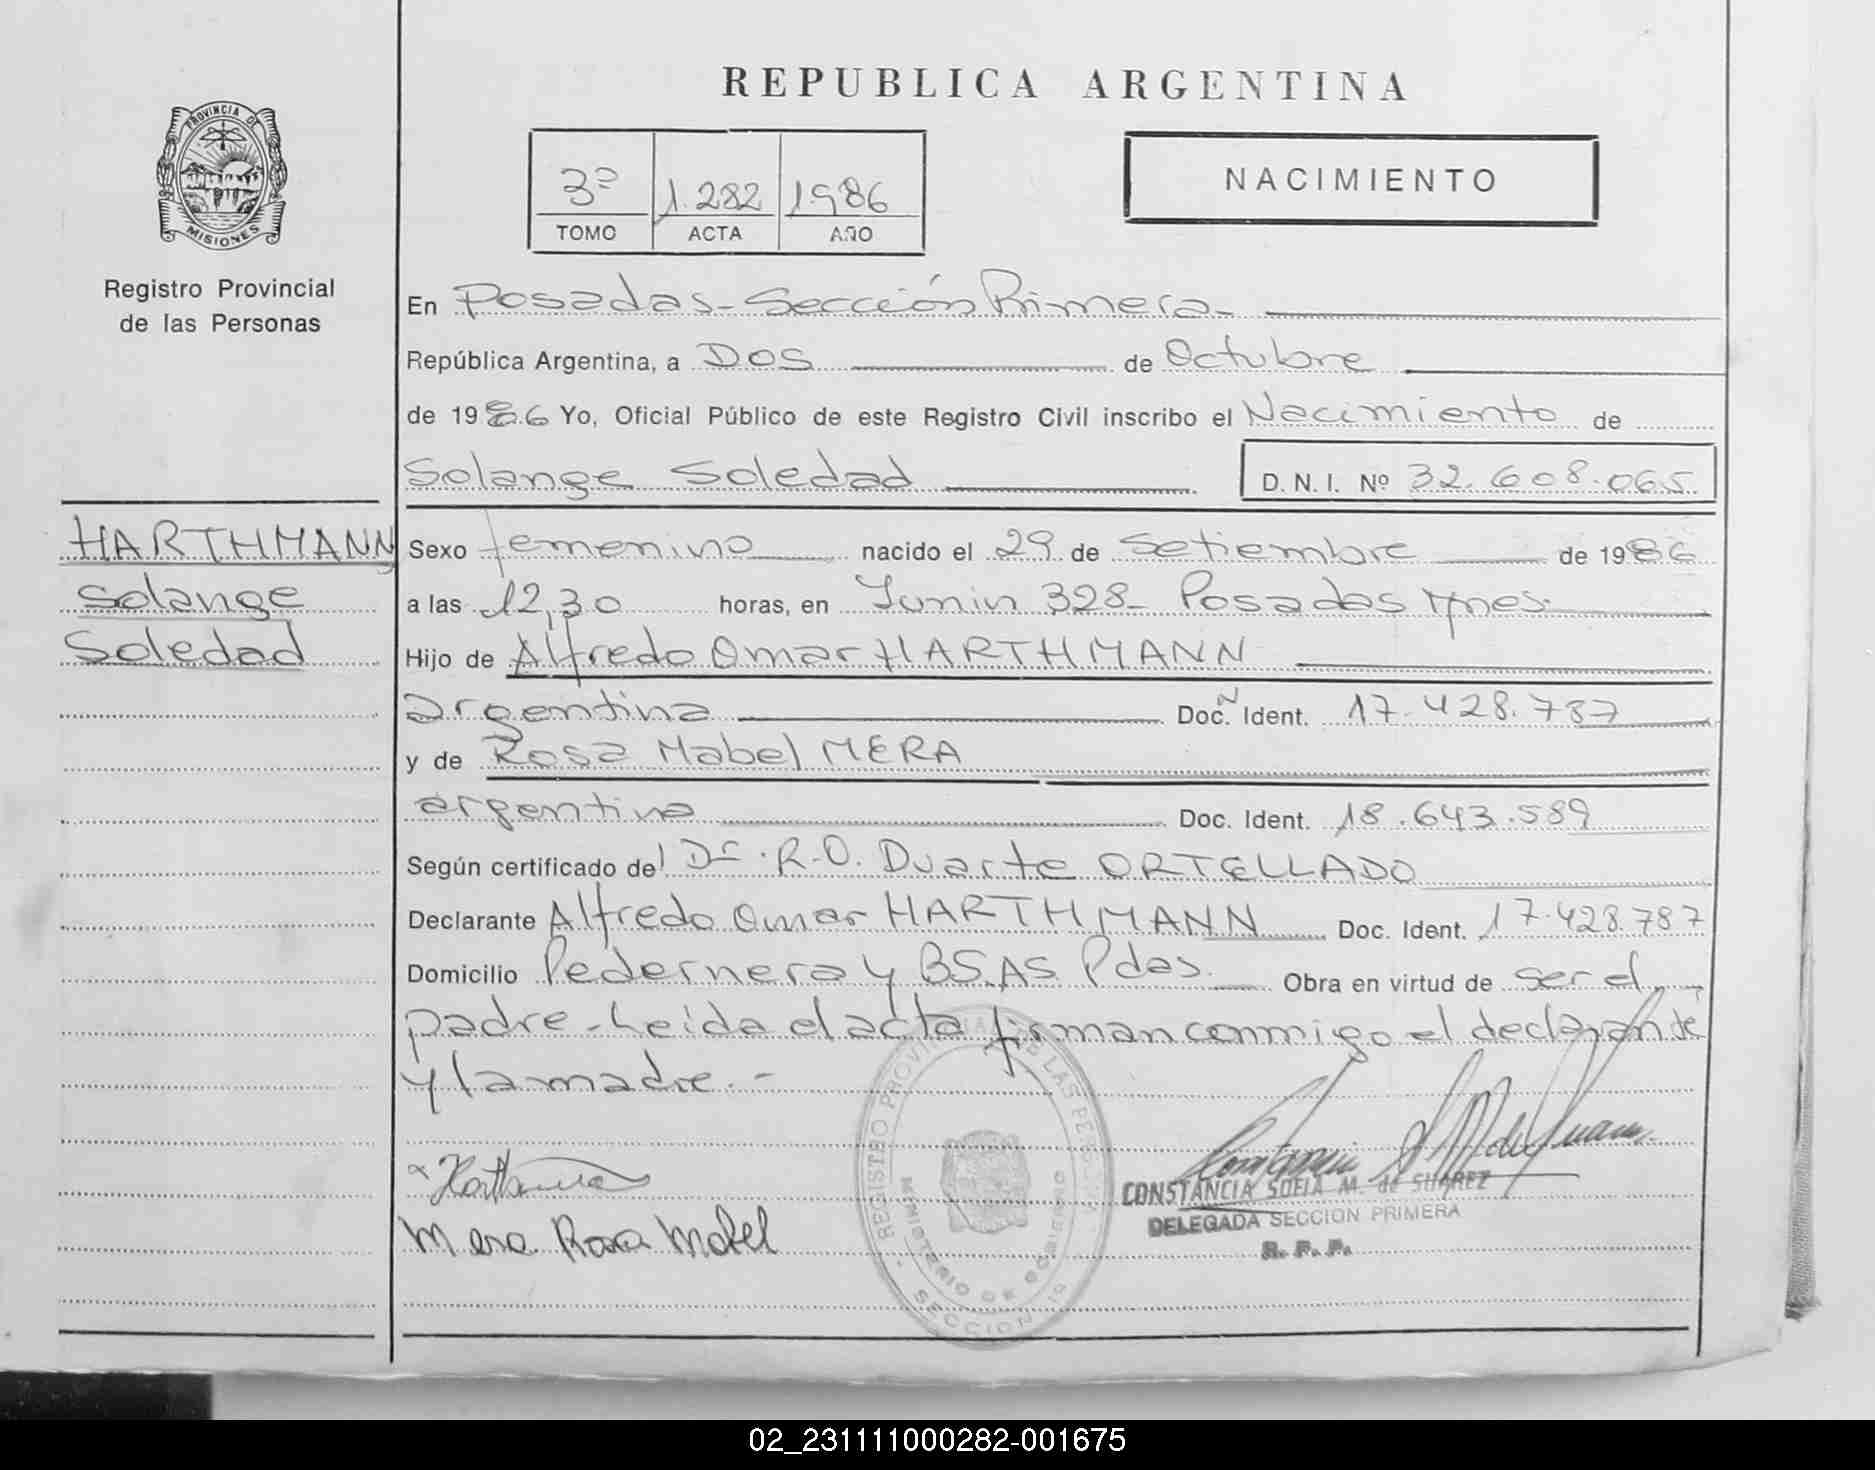 REPUBLICA ARGENTINA
PROVINCIA DE
MISIONES
Registro Provincial
de las Personas
3º 1.282 1986
TOMO ACTA AÑO
NACIMIENTO
En Posadas - Sección Primera -
República Argentina, a Dos de Octubre
de 1986 Yo, Oficial Público de este Registro Civil inscribo el Nacimiento de
Solange Soledad D. N. I. Nº 32.608.065
HARTHMANN
Solange
Soledad
Sexo femenino nacido el 29 de Setiembre de 1986
a las 12,30 horas, en Junin 328 - Posadas Mnes.
Hijo de Alfredo Omar HARTHMANN
argentina Doc. Ident. 17.428.787
y de Rosa Mabel MERA
argentina Doc. Ident. 18.643.589
Según certificado del Dr. R.O. Duarte ORTELLADO
Declarante Alfredo Omar HARTHMANN Doc. Ident. 17.428.787
Domicilio Pedernera y BS.AS. Pdas. Obra en virtud de ser el
padre - Leida el acta firman conmigo el declarante
y la madre. -
Mera Rosa Mabel
REGISTRO PROVINCIAL DE LAS PERSONAS
MINISTERIO DE GOBIERNO
- SECCION 1ª
CONSTANCIA SOFIA M. de SUAREZ
DELEGADA SECCION PRIMERA
R. P. P.
02_231111000282-001675